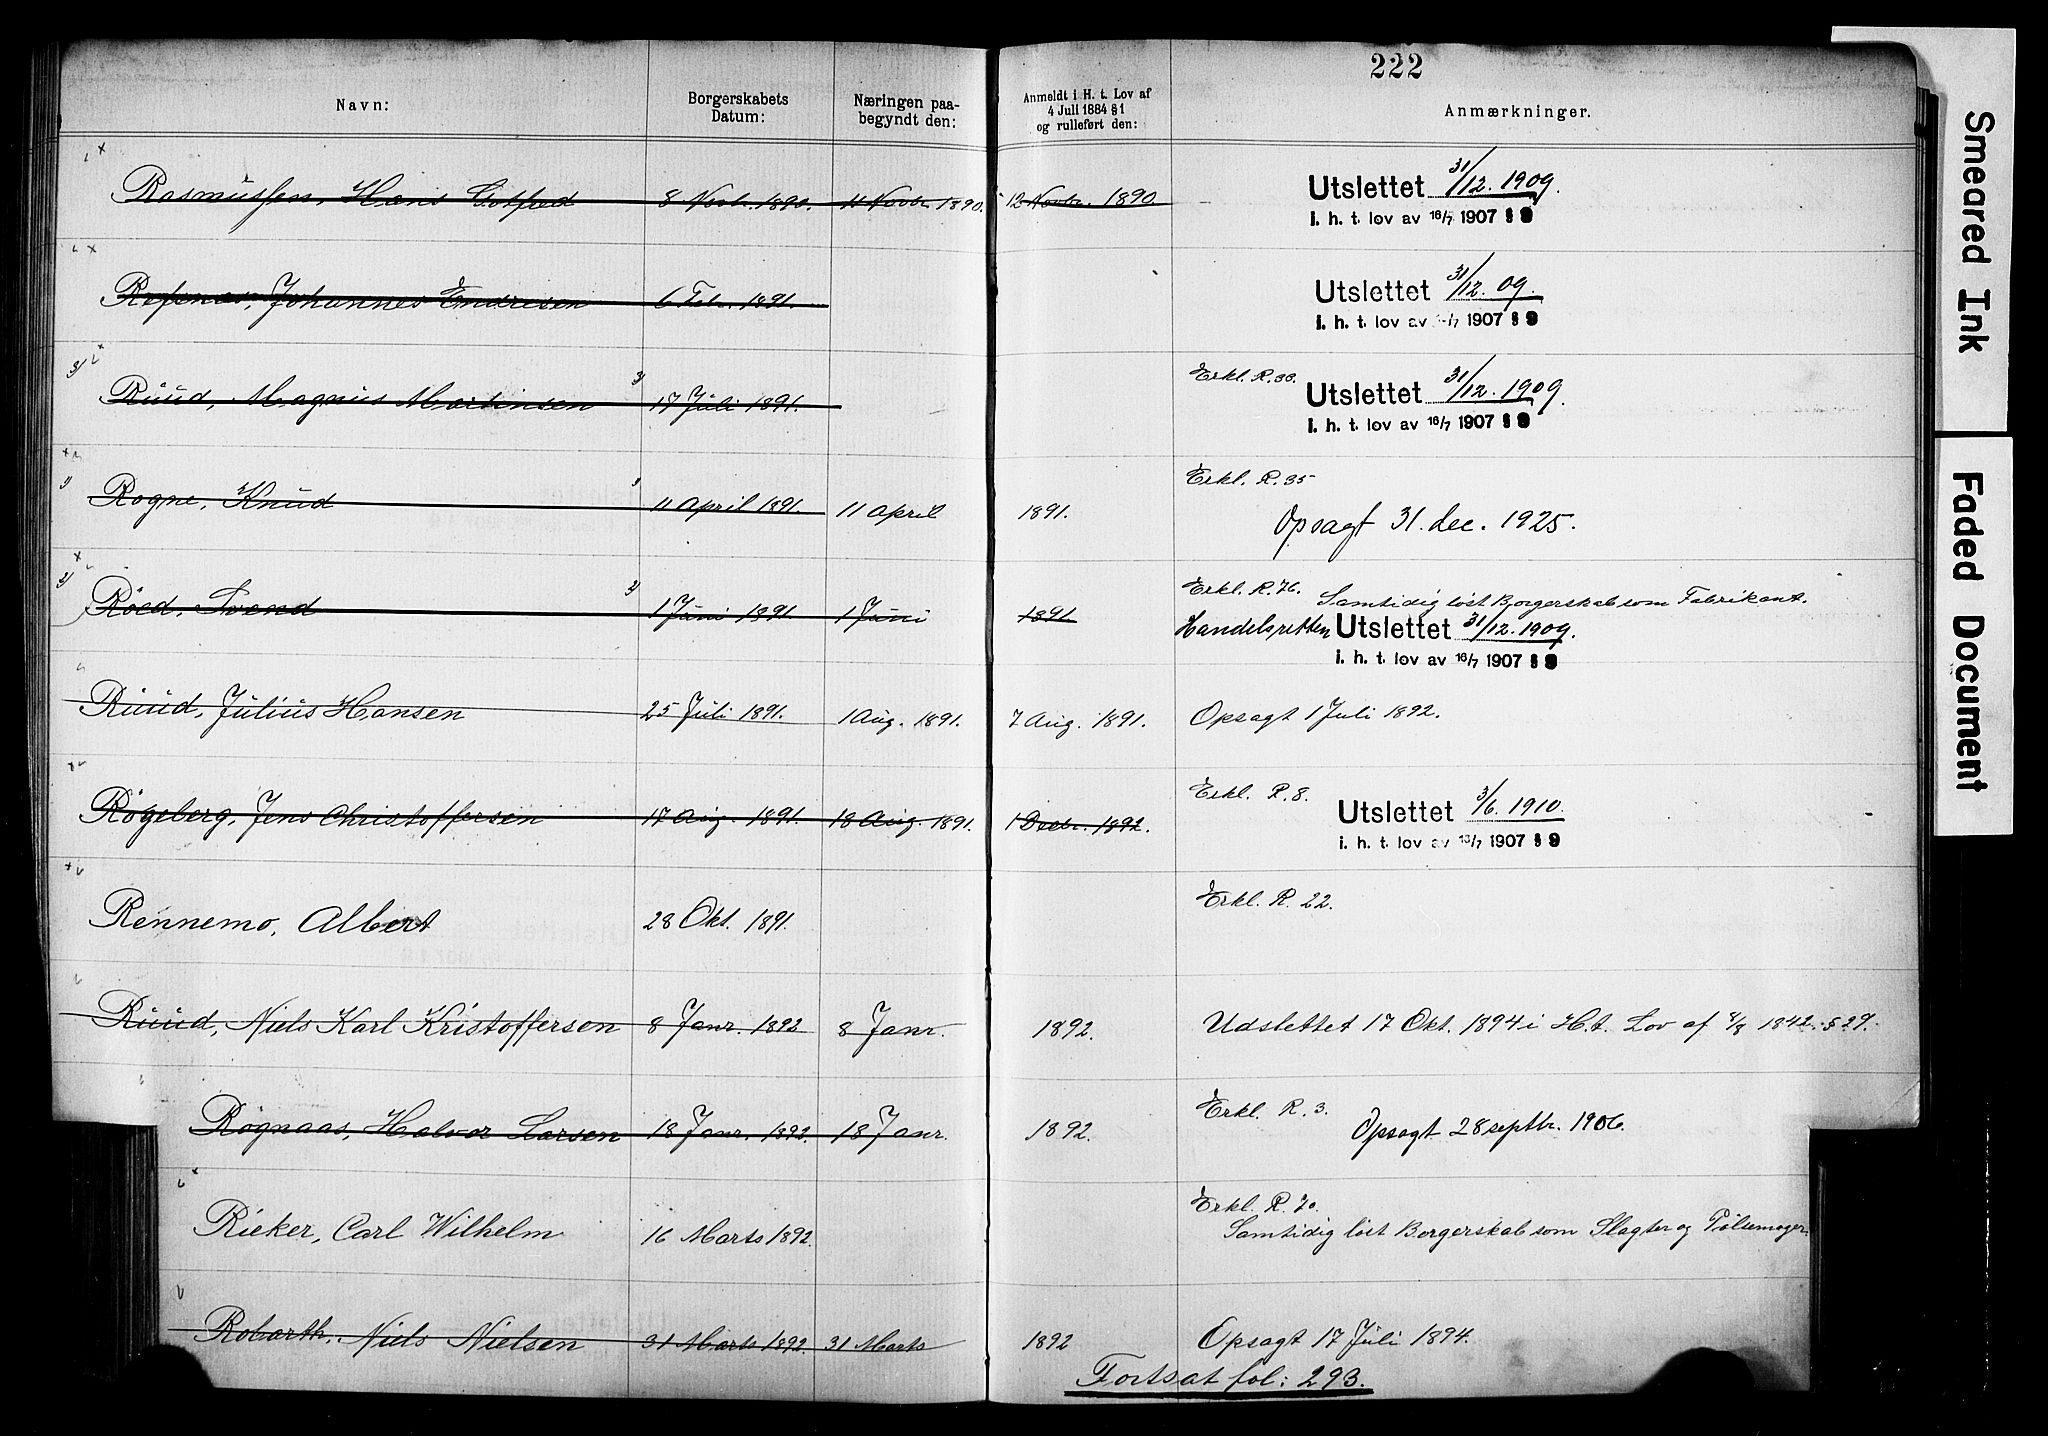 222
Navn: Borgerskabets Datum: Næringen paabegyndt den: Anmeldt i H. t. Lov af 4 Juli 1884 § 1 og rulleført den: Anmærkninger.
Rasmussen, Hans Gotfred 8 Novbr. 1890. 11 Novbr. 1890. 12 Novbr. 1890. Utslettet 31/12. 1909.
i. h. t. lov av 16/7 1907 § 9
Refsnes, Johannes Endresen 6 Febr. 1891. Utslettet 31/12. 09.
i. h. t. lov av /7 1907 § 9
Erkl. R. 33.
3) Ruud, Magnus Martinsen 3) 17 Juli 1891. Utslettet 31/12. 1909.
i. h. t. lov av 16/7 1907 § 9
Erkl. R. 35
1) Rogne, Knud 11 April 1891. 11 April 1891. Opsagt 31. dec. 1925.
Erkl. R. 76. Samtidig løst Borgerskab som Fabrikant.
2) Röed, Svend 2) 1 Juni 1891. 1 Juni 1891. Handelsretten Utslettet 31/12. 1909.
i. h. t. lov av 16/7 1907 § 9
Ruud, Julius Hansen 25 Juli 1891. 1 Aug. 1891. 7 Aug. 1891. Opsagt 1 Juli 1892.
Erkl. R. 8.
Rögeberg, Jens Christoffersen 17 Aug. 1891. 18 Aug. 1891. 1 Decbr. 1892. Utslettet 3/6. 1910.
i. h. t. lov av 16/7 1907 § 9
Erkl. R. 22.
Rennemo, Albert 28 Okt. 1891.
Ruud, Niels Karl Kristoffersen 8 Janr. 1892 8 Janr. 1892. Udslettet 17 Okt. 1894 i H.t. Lov af 8/8 1842. § 29.
Erkl. R. 3.
Røgnaas, Halvor Larsen 18 Janr. 1892. 18 Janr. 1892. Opsagt 28 septbr. 1906.
Erkl. R. 70.
Rieker, Carl Wilhelm 16 Marts 1892. Samtidig löst Borgerskab som Slagter og Pølsemager.
Robarth, Niels Nielsen 31 Marts 1892. 31 Marts 1892 Opsagt 17 Juli 1894.
Fortsat fol: 293.
Smeared Ink
Faded Document